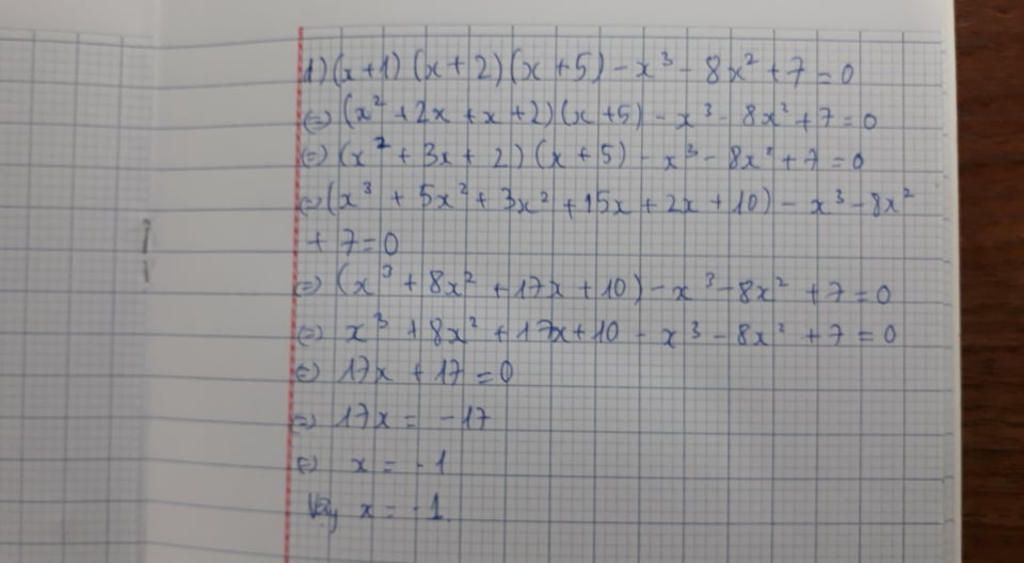 1) (x+1) (x+2) (x+5) - x³ - 8x² + 7 = 0
⇔ (x² + 2x + x + 2)(x+5) - x³ - 8x² + 7 = 0
⇔ (x² + 3x + 2) (x+5) - x³ - 8x² + 7 = 0
⇔ (x³ + 5x² + 3x² + 15x + 2x + 10) - x³ - 8x²
+ 7 = 0
⇔ (x³ + 8x² + 17x + 10) - x³ - 8x² + 7 = 0
⇔ x³ + 8x² + 17x + 10 - x³ - 8x² + 7 = 0
⇔ 17x + 17 = 0
⇔ 17x = -17
⇔ x = -1
Vậy x = -1.